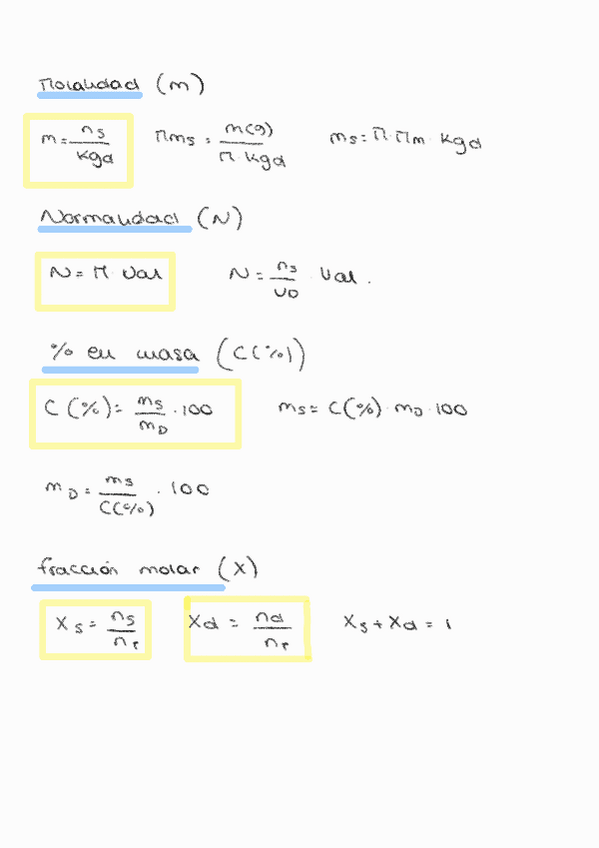 Molalidad (m)
m = ns/kgd   Mms = m(g)/M·kgd   ms = M·Mm·kgd
Normalidad (N)
N = M·Val   N = ns/VD · Val.
% en masa (C(%))
C(%) = ms/mD · 100   ms = C(%)·mD·100
mD = ms/C(%) · 100
fracción molar (X)
Xs = ns/nT   Xd = nd/nT   Xs + Xd = 1